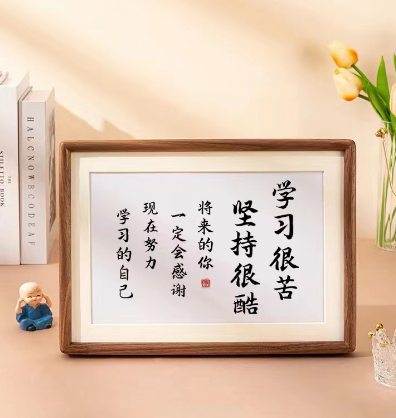 学习很苦
坚持很酷
将来的你
一定会感谢
现在努力
学习的自己
HALCNOWECODEAF